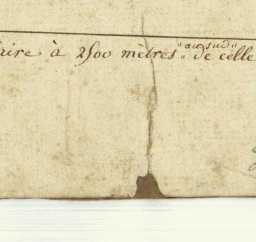 aire à 2500 mètres "au sud" de celle